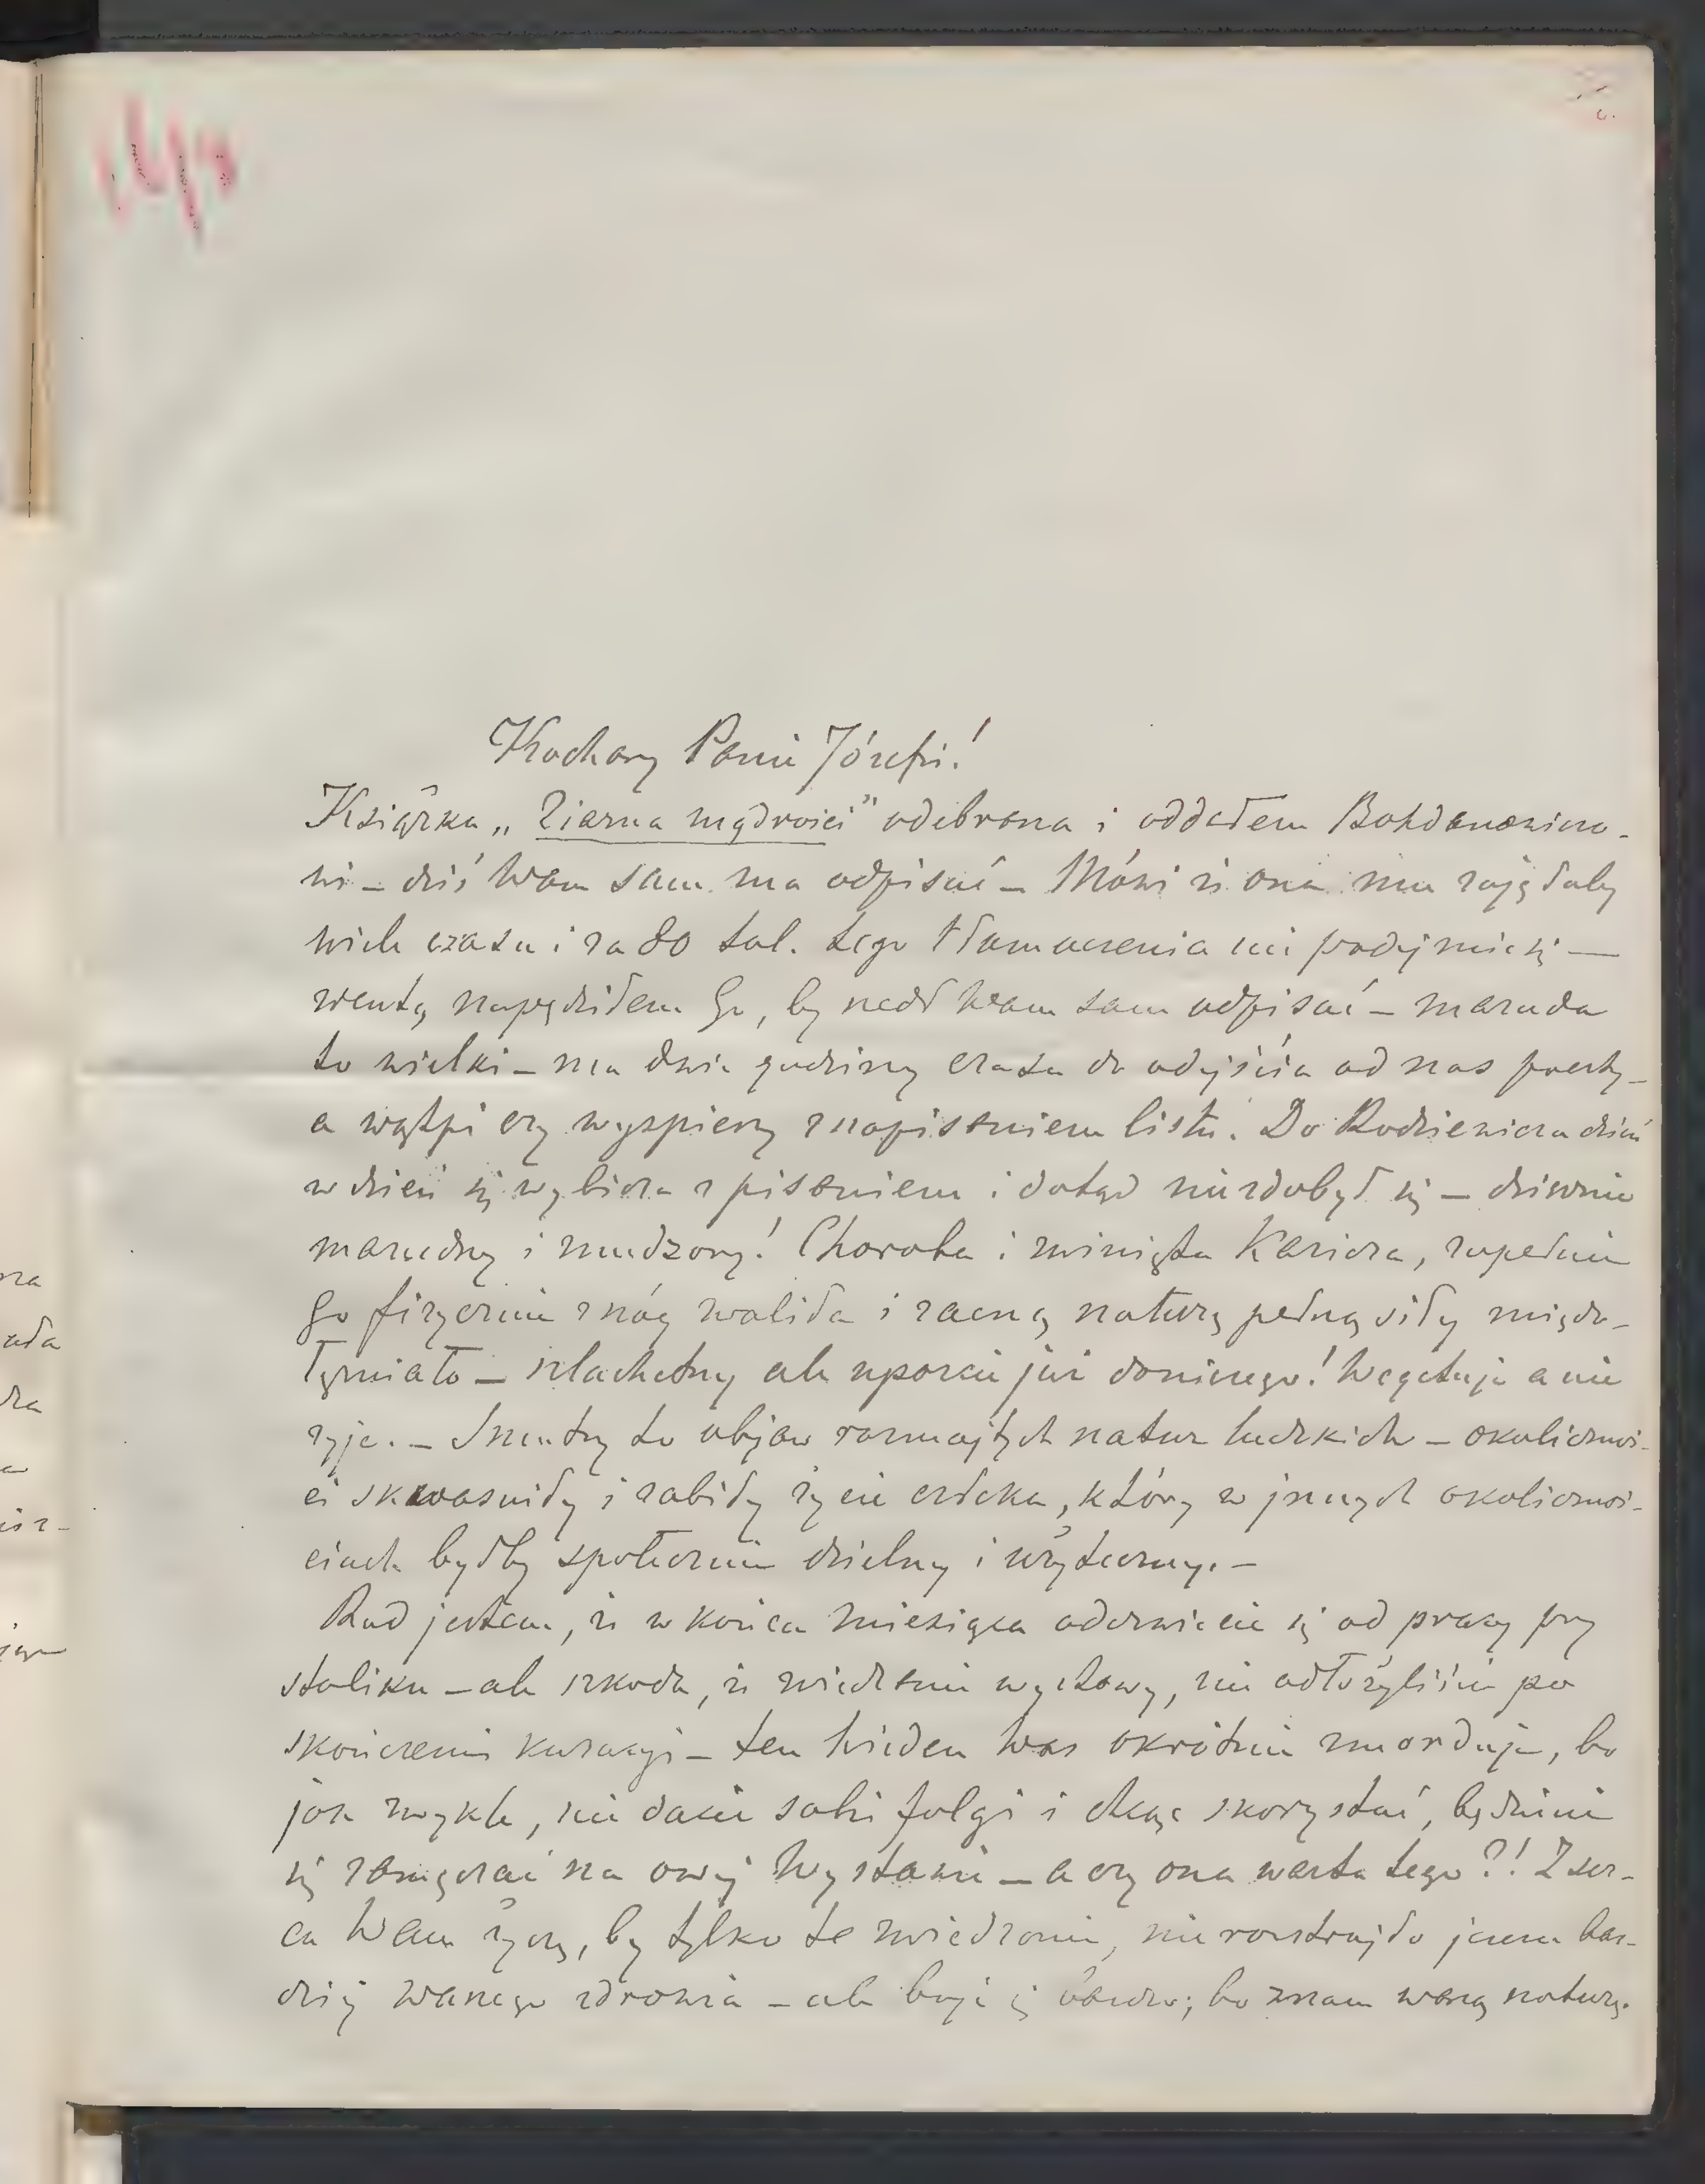 Kochany Panie Józefie!
Książka „Ziarna mądrości" odebrana i oddałem Bohdanowiczo-
wi – dziś Wam sam ma odpisać – Mówi że ona mu zajęłaby
wiele czasu i za 80 tal. tego tłumaczenia nie podejmie się —
zresztą napędziłem Go, by siadł Wam sam odpisać – maruda
to wielki – ma dwie godziny czasu do odejścia od nas poczty –
a wątpi czy wyspieszy z napisaniem listu. Do Rodziewicza dzień
w dzień się wybiera z pisaniem i dotąd nie zdobył się – dziwnie
marudny i nudzony! Choroba i zwinięta Kariera, zupełnie
Go fizycznie z nóg zwaliła i zacną naturę pełną siły
szlachetny ale uparciuch już do niczego! Wegetuje a nie
żyje. – Smutny to objaw rozmajtych natur ludzkich – okoliczноś-
ci skwasniły i zabiły życie człeka, który w jnnych okolicznoś-
ciach byłby społecznie dzielny i użyteczny. –
Rad jestem, że w końcu miesiąca oderwiecie się od pracy przy
stoliku – ale szkoda, że zwiedzenie wystawy, nie odłożyliście po
skończeniu kuracyi – ten Wiedeń Was okrótnie zmorduje, bo
jak zwykle, nie dacie sobie folgi i chcąc skorzystać, będziecie
się zamęczać na owej Wystawie – a czy ona warta tego?! Z ser-
ca Wam życzę, by tylko te zwiedzenie, nie rozstrajło jeszcze bar-
dziej waszego zdrowia – ale boję się bardzo; bo znam waszą naturę.